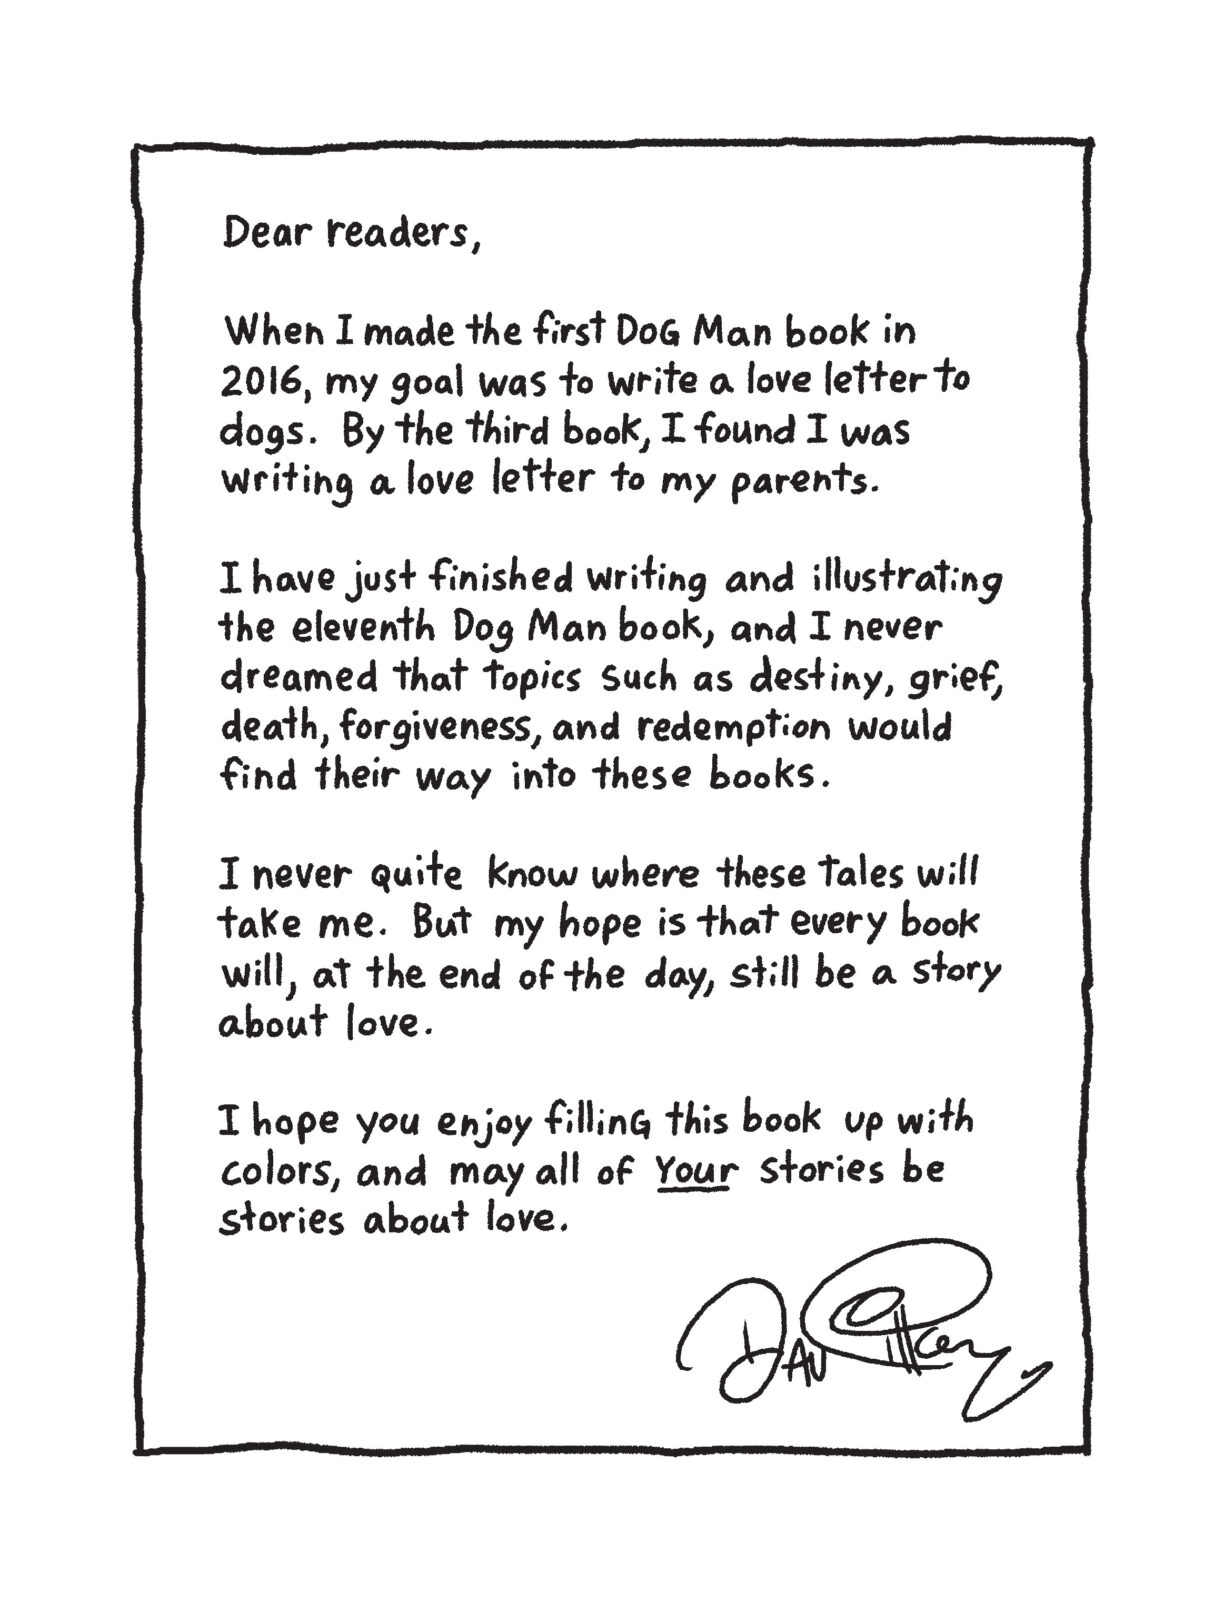 Dear readers,
When I made the first DoG Man book in
2016, my goal was to write a love letter to
dogs. By the third book, I found I was
writing a love letter to my parents.
I have just finished writing and illustrating
the eleventh Dog Man book, and I never
dreamed that topics such as destiny, grief,
death, forgiveness, and redemption would
find their way into these books.
I never quite know where these tales will
take me. But my hope is that every book
will, at the end of the day, still be a story
about love.
I hope you enjoy filling this book up with
colors, and may all of Your stories be
stories about love.
Dav Pilkey